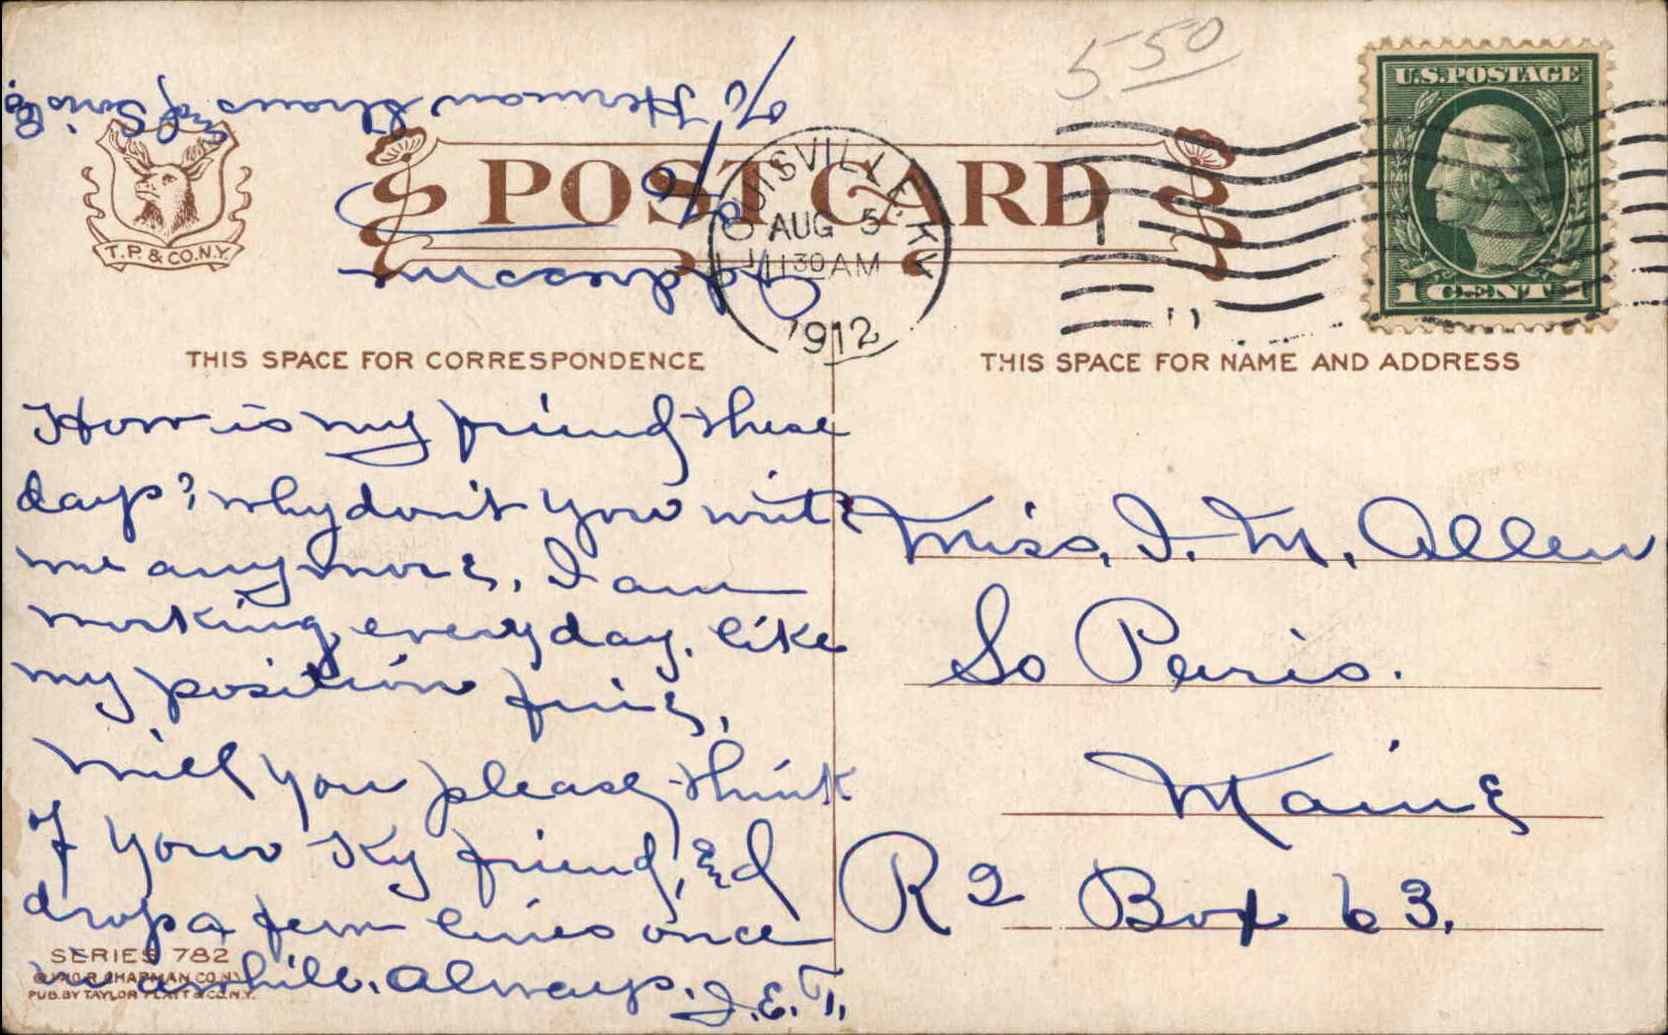 5 50
U.S. POSTAGE
1 CENT 1
% Herman Straus and Sons Co.
POST CARD
LOUISVILLE, KY.
AUG 5
11 30 AM
1912
T. P. & CO. N.Y.
Address me
THIS SPACE FOR CORRESPONDENCE
THIS SPACE FOR NAME AND ADDRESS
How is my friend these
days? why don't you write
me any more, I am
working every day, like
my position fine,
Will you please think
of your Ky friend, and
drop a few lines once
in awhile. Always.
J.E.T.
Miss, I. M. Allen
So Paris.
Maine
R 2 Box 63.
SERIES 782
© 1910 R. CHAPMAN CO. N.Y.
PUB. BY TAYLOR PLATT & CO. N.Y.